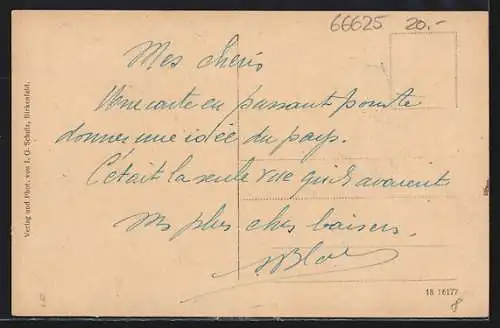 66625 20.-
Mes chéris
Une carte en passant pour te
donner une idée du pays.
C'était la seule vue qu'ils avaient
Mes plus chers baisers.
Verlag und Phot. von I. G. Schulz, Birkenfeld.
18 16177
8